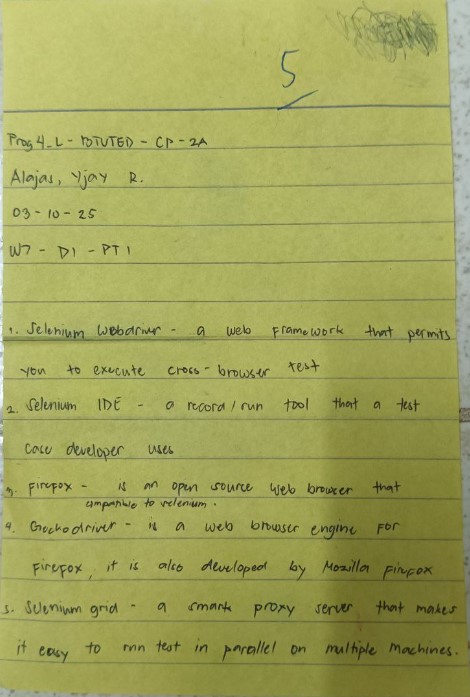 5
Prog 4_L - BTVTED - CP - 2A
Alajas, Yjay R.
03 - 10 - 25
W7 - D1 - PT1
1. Selenium Webdriver - a web framework that permits
you to execute cross-browser test
2. Selenium IDE - a record/run tool that a test
case developer uses
3. Firefox - is an open source web browser that
compatible to selenium.
4. Gechodriver - is a web browser engine for
Firefox, it is also developed by Mozilla Firefox
5. Selenium grid - a smart proxy server that makes
it easy to run test in parallel on multiple machines.